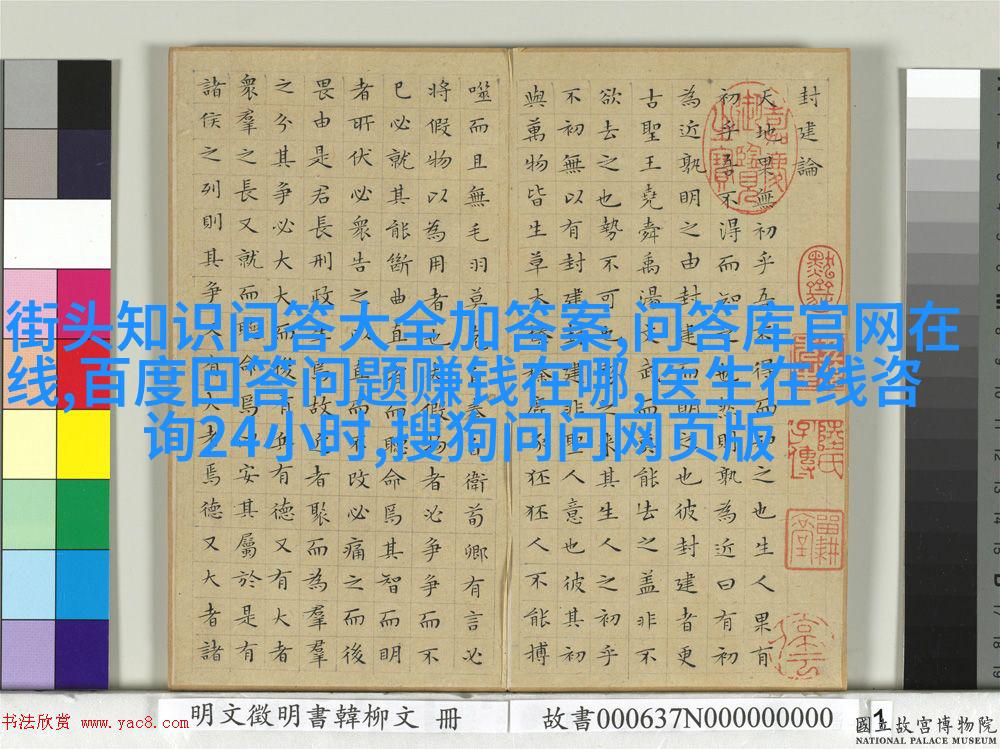 封建論
天地果無初乎吾不得而知之也生人果有
初乎吾不得而知之也然則孰為近曰有初
為近孰明之由封建而明之也彼封建者更
古聖王堯舜禹湯文武而莫能去之蓋非不
欲去之也勢不可也勢之來其生人之初乎
不初無以有封建封建非聖人意也彼其初
與萬物皆生草木榛榛鹿豕狉狉人不能搏
噬而且無毛羽莫克自奉自衛荀卿有言必
將假物以為用者也夫假物者必爭爭而不
已必就其能斷曲直者而聽命焉其智而明
者所伏必眾告之以直而不改必痛之而後
畏由是君長刑政生焉故近者聚而為羣
之分其爭必大大而後有兵有德又有大者
衆羣之長又就而聽命焉以安其屬於是有
諸侯之列則其爭又有大者焉德又大者諸
街头知识问答大全加答案,问答库官网在
线,百度回答问题赚钱在哪,医生在线咨
询24小时,搜狗问问网页版
书法欣赏 www.yac8.com
明文徵明書韓柳文 冊
故書000637N000000000
1
國立故宮博物院
NATIONAL PALACE MUSEUM